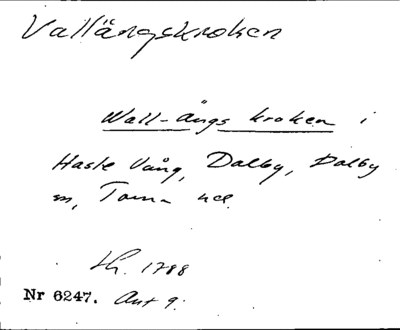 Vallängskroken
Wall-ängs kroken i
Hasle Vång, Dalby, Dalby
sn, Torna hd.
1788
Nr 6247. Akt 9.